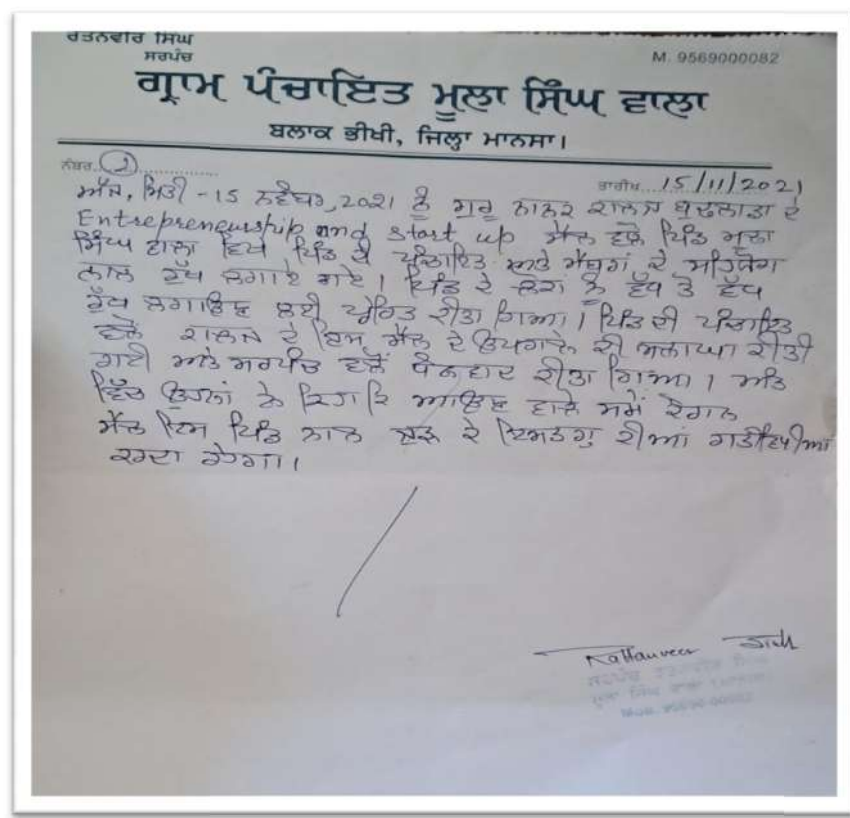 ਰਤਨਵੀਰ ਸਿੰਘ
ਸਰਪੰਚ
M. 9569000082
ਗ੍ਰਾਮ ਪੰਚਾਇਤ ਮੂਲਾ ਸਿੰਘ ਵਾਲਾ
ਬਲਾਕ ਭੀਖੀ, ਜਿਲ੍ਹਾ ਮਾਨਸਾ।
ਨੰਬਰ
ਤਾਰੀਖ 15/11/2021
ਅੱਜ, ਮਿਤੀ -15 ਨਵੰਬਰ, 2021 ਨੂੰ ਗੁਰੂ ਨਾਨਕ ਕਾਲਜ ਬੁਢਲਾਡਾ ਦੇ
Entrepreneurship and start up ਸੈੱਲ ਵਲੋਂ ਪਿੰਡ ਮੂਲਾ
ਸਿੰਘ ਵਾਲਾ ਵਿਖੇ ਪਿੰਡ ਦੀ ਪੰਚਾਇਤ ਅਤੇ ਮੈਂਬਰਾਂ ਦੇ ਸਹਿਯੋਗ
ਨਾਲ ਰੁੱਖ ਲਗਾਏ ਗਏ। ਪਿੰਡ ਦੇ ਲੋਕਾਂ ਨੂੰ ਵੱਧ ਤੋਂ ਵੱਧ
ਰੁੱਖ ਲਗਾਉਣ ਲਈ ਪ੍ਰੇਰਿਤ ਕੀਤਾ ਗਿਆ। ਪਿੰਡ ਦੀ ਪੰਚਾਇਤ
ਵਲੋਂ ਕਾਲਜ ਦੇ ਇਸ ਸੈੱਲ ਦੇ ਉਪਰਾਲੇ ਦੀ ਸ਼ਲਾਘਾ ਕੀਤੀ
ਗਈ ਅਤੇ ਸਰਪੰਚ ਵਲੋਂ ਧੰਨਵਾਦ ਕੀਤਾ ਗਿਆ। ਅੰਤ
ਵਿੱਚ ਉਹਨਾਂ ਨੇ ਕਿਹਾ ਕਿ ਆਉਣ ਵਾਲੇ ਸਮੇਂ
ਸੈੱਲ ਇਸ ਪਿੰਡ ਨਾਲ ਜੁੜ ਕੇ ਇਸ ਤਰ੍ਹਾਂ ਦੀਆਂ ਗਤੀਵਿਧੀਆਂ
ਕਰਦਾ ਰਹੇਗਾ।